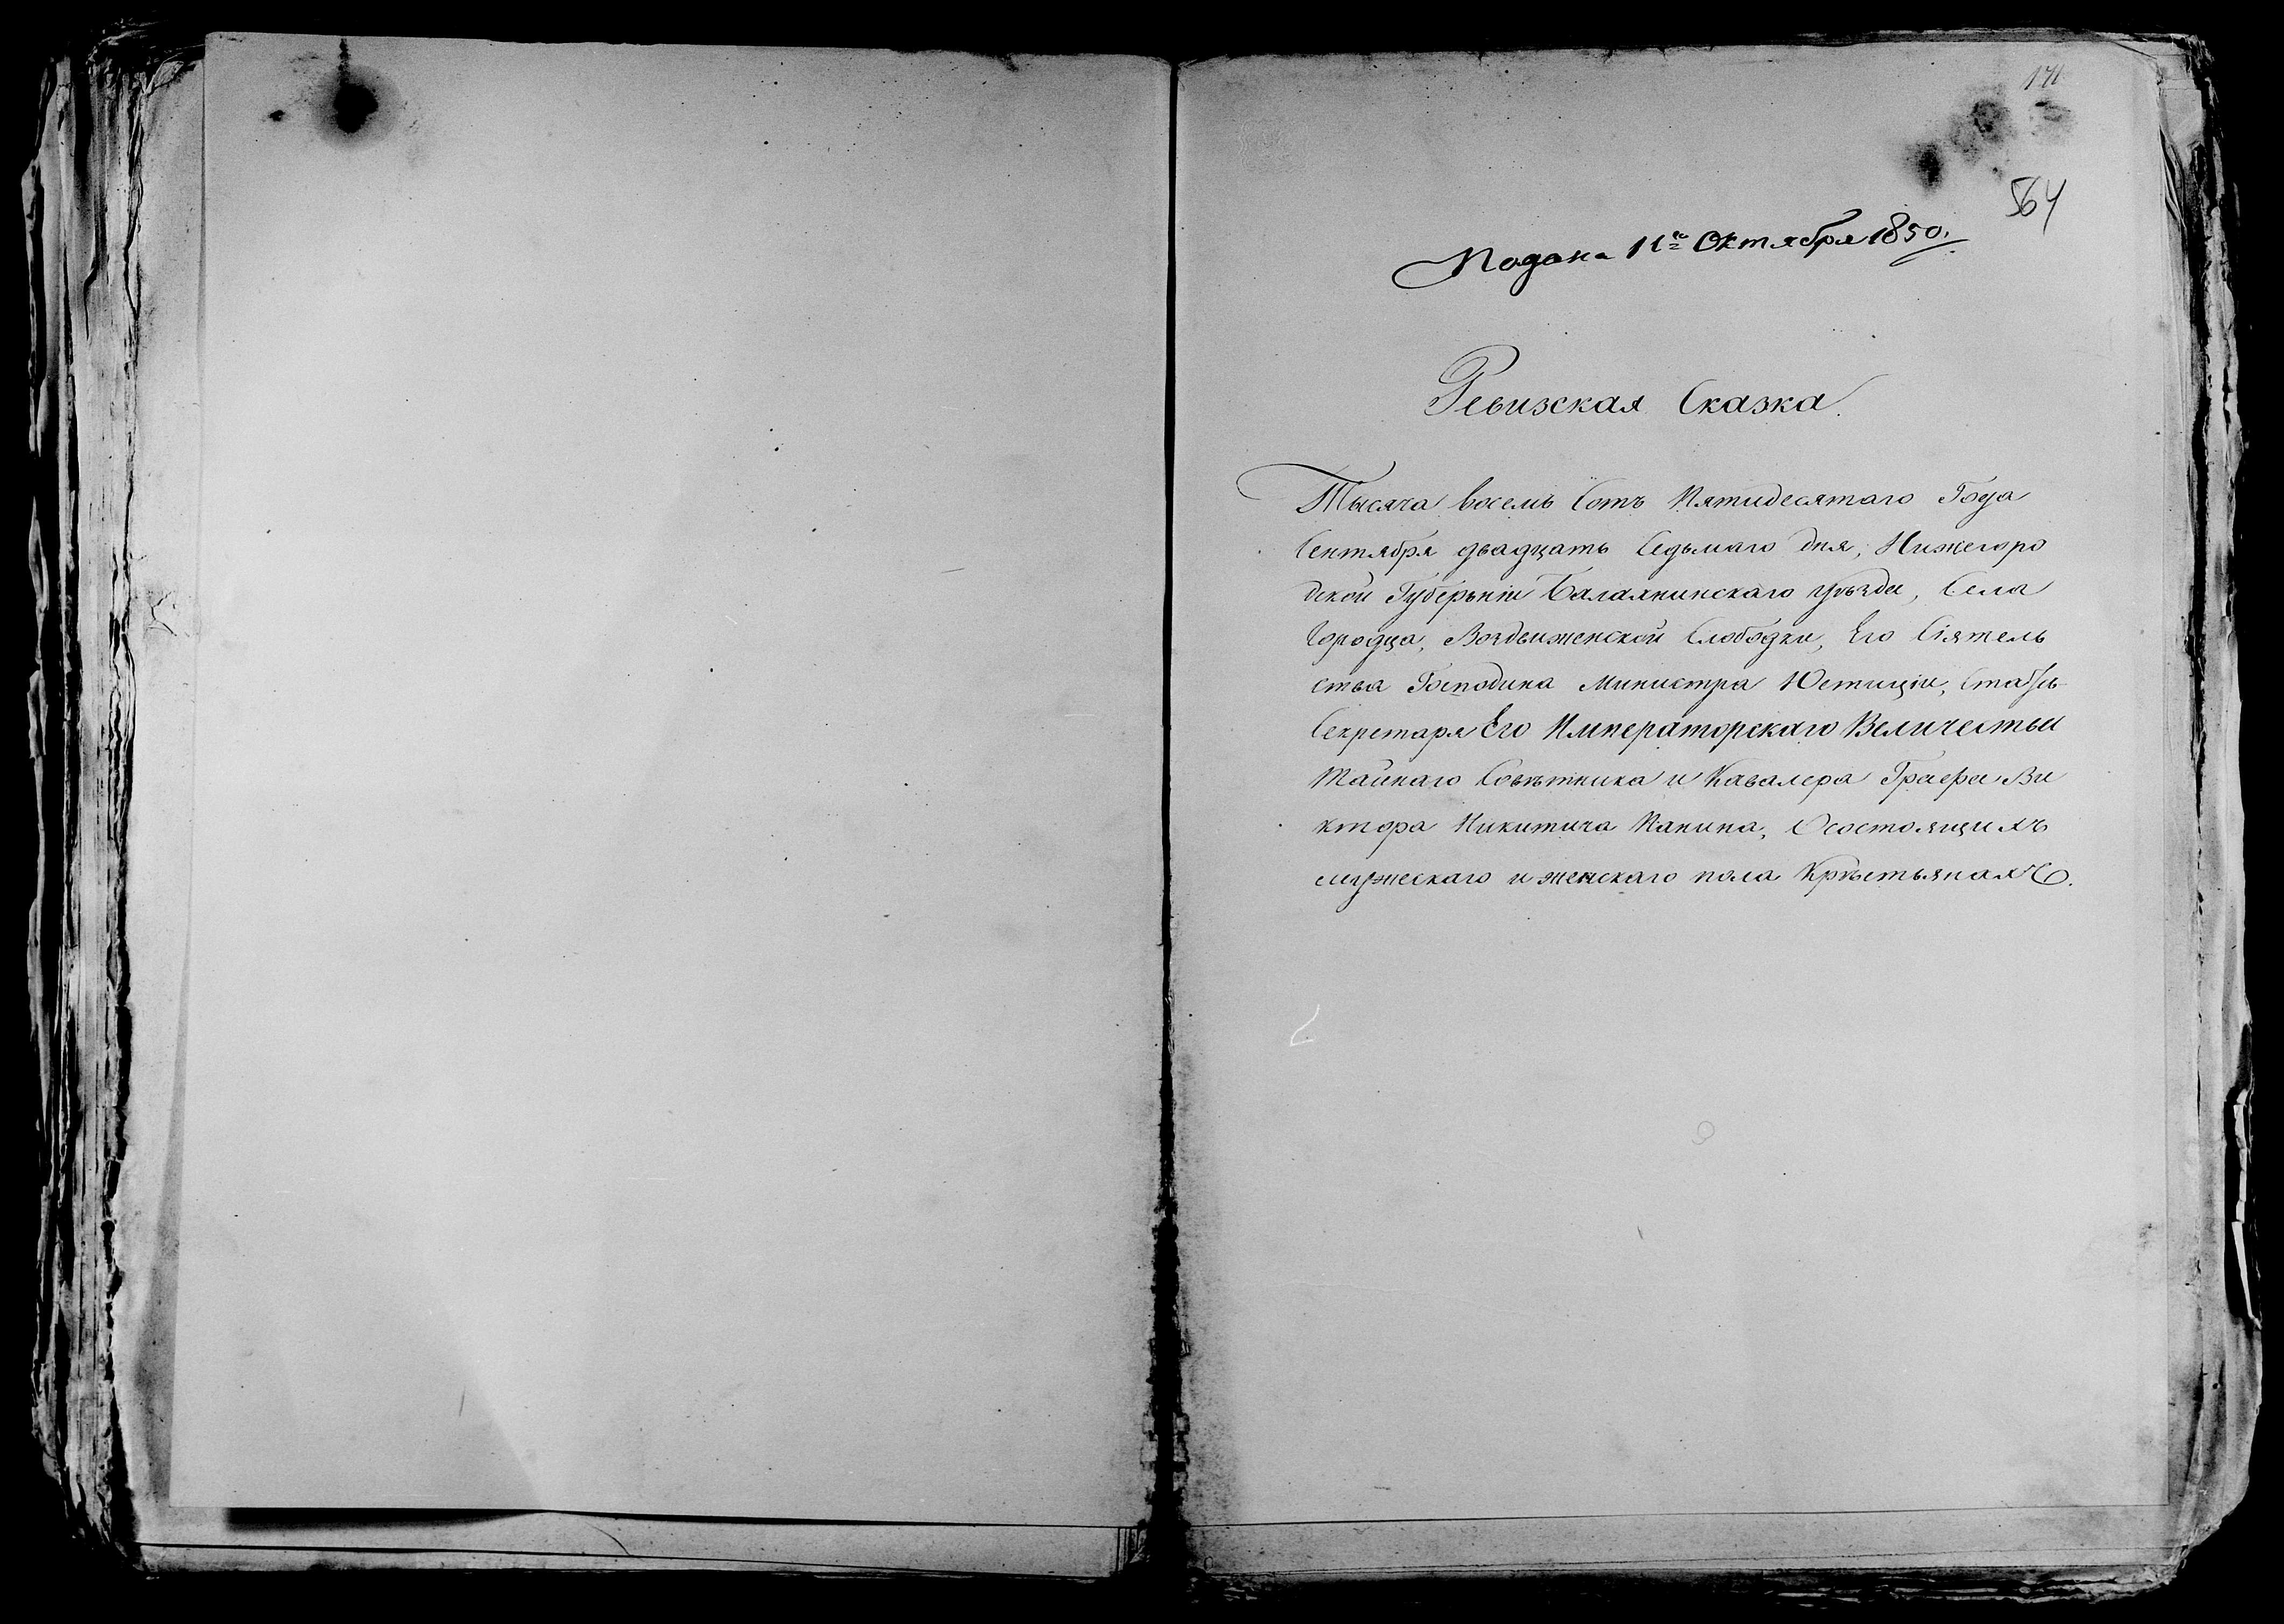 171
564
Подана 11го Октября 1850.
Ревизская Сказка.
Тысяча восемь Сотъ Пятидесятаго Года
Сентября двадцать Седьмаго дня, Нижегоро
дской Губерьніи Балахнинскаго уѣзда, Села
Городца, Воздвиженской Слободки, Его Сіятель
ства Господина Министра Юстиціи, Статсъ-
Секретаря Его Императорскаго Величества
Тайнаго Совѣтника и Кавалера Графа Ви
ктора Никитича Панина, Осостоящихъ
мужескаго и женскаго пола Крѣстьянахъ.